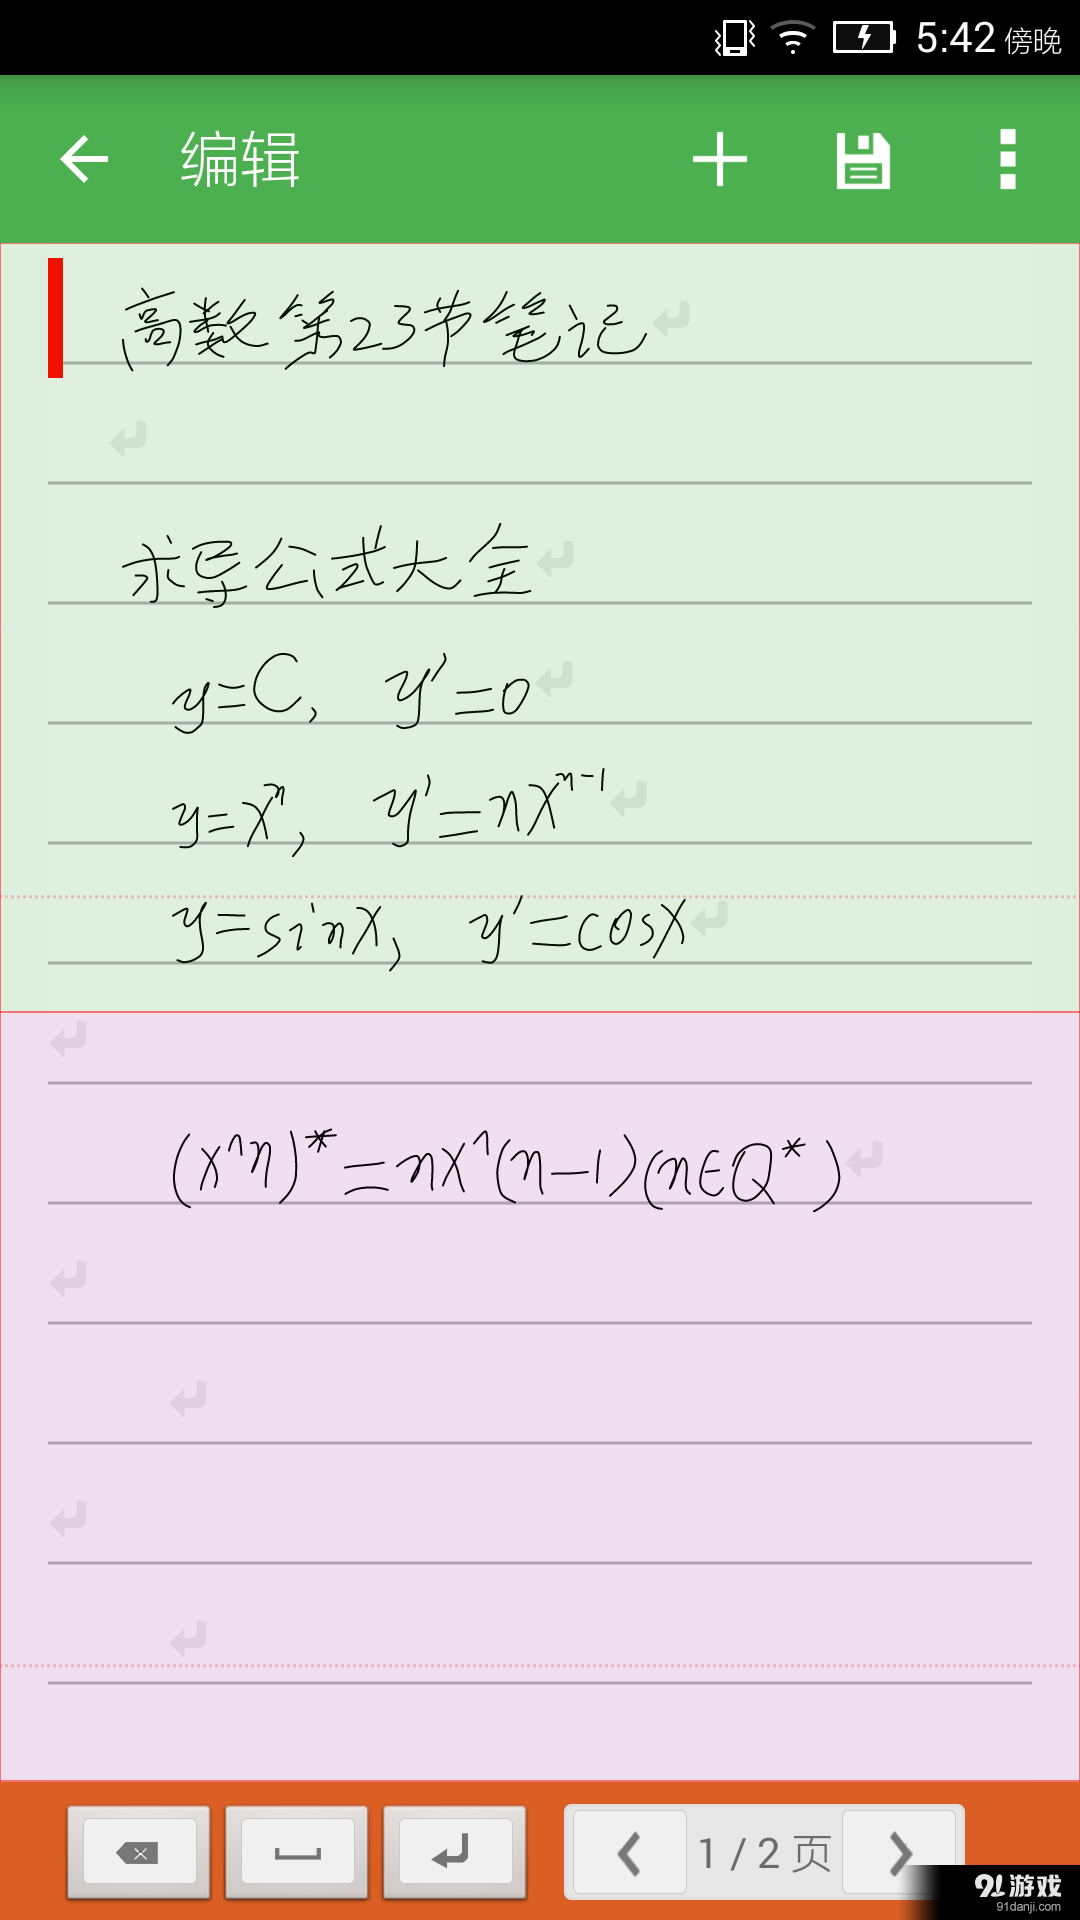 5:42 傍晚
编辑
高数第23节笔记
求导公式大全
y=C, y'=0
y=x^n, y'=nx^{n-1}
y=sinx, y'=cosx
(x^n)*=nx^(n-1)(n∈Q*)
1 / 2 页
91游戏
91danji.com